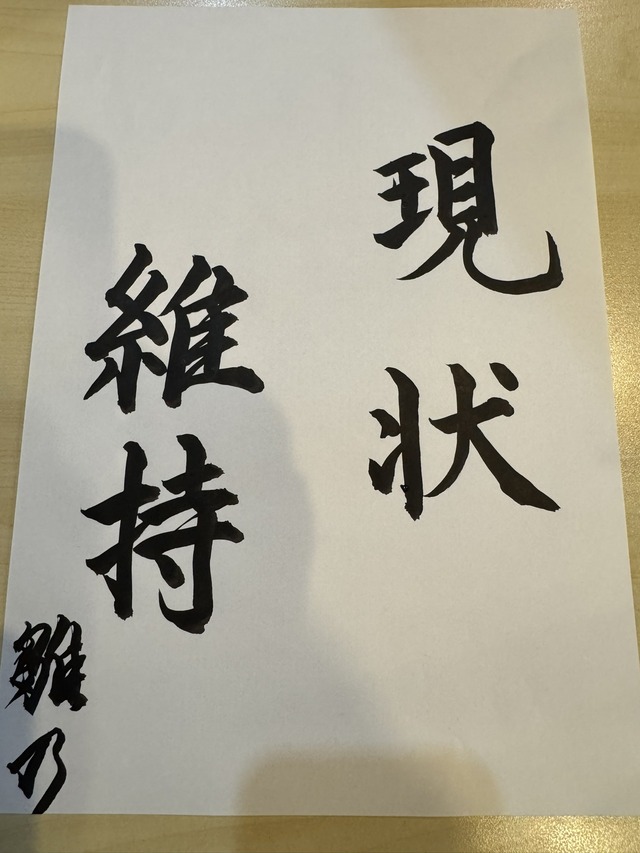 現状
維持
雛乃